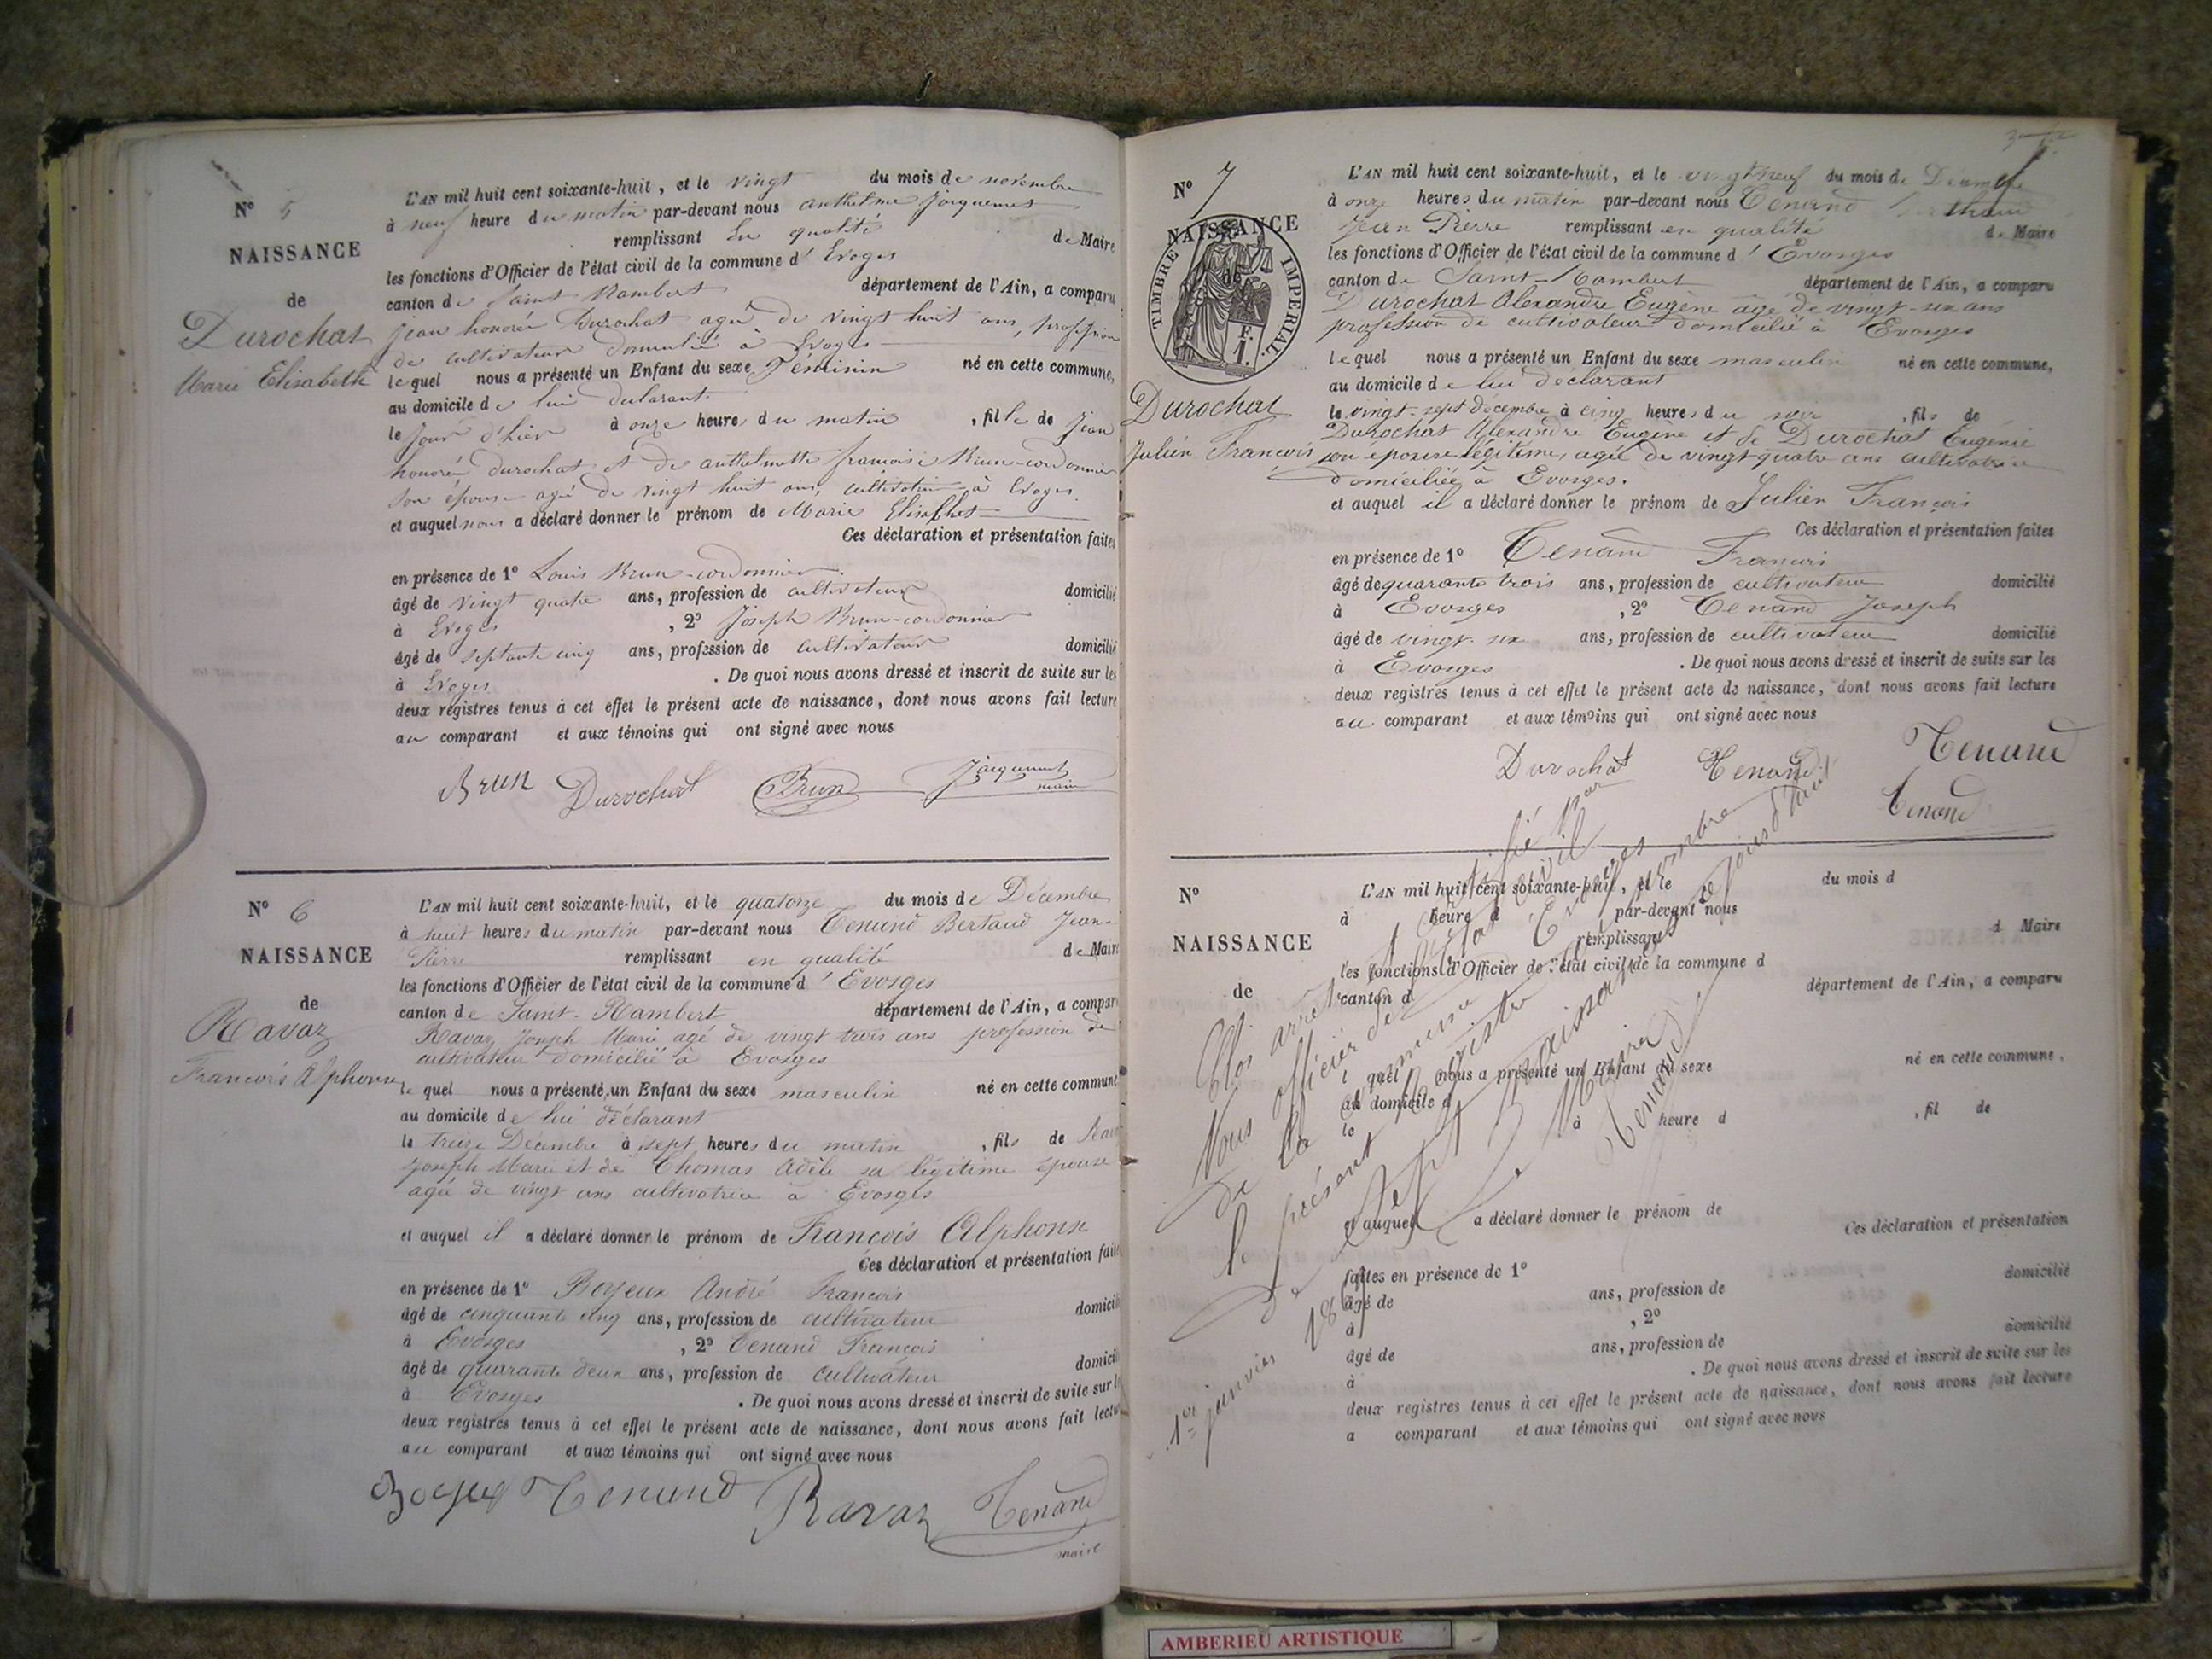 N° 5
NAISSANCE
de
Durochat
Marie Elisabeth
L'AN mil huit cent soixante-huit, et le vingt du mois de novembre
à neuf heure du matin par-devant nous anthelme Jacquemet
remplissant En qualité de Maire
les fonctions d'Officier de l'état civil de la commune d' Evoges
canton de Saint Rambert département de l'Ain, a comparu
jean honoré Durochat agé de vingt huit ans,
de cultivateur domicilié à Evoges
lequel nous a présenté un Enfant du sexe Féminin né en cette commune,
au domicile de lui declarant
le jour d'hier à onze heure du matin, fille de jean
honoré durochat et de anthelmette françoise Brun-cordonnier
son épouse agé de vingt huit ans, à Evoges.
et auquel nous a déclaré donner le prénom de Marie
Ces déclaration et présentation faites
en présence de 1° Louis Brun-cordonnier
âgé de vingt quatre ans, profession de cultivateur domicilié
à Evoges, 2° Joseph Brun-cordonnier
âgé de septante cinq ans, profession de cultivateur domicilié
à Evoges. De quoi nous avons dressé et inscrit de suite sur les
deux registres tenus à cet effet le présent acte de naissance, dont nous avons fait lecture
au comparant et aux témoins qui ont signé avec nous
Brun Durochat Brun Jacquemet
maire
N° 6
NAISSANCE
de
Ravaz
François Alphonse
L'AN mil huit cent soixante-huit, et le quatorze du mois de Décembre
à huit heures du matin par-devant nous Tenand Bertaud Jean-
Pierre remplissant en qualité de Maire
les fonctions d'Officier de l'état civil de la commune d' Evosges
canton de Saint-Rambert département de l'Ain, a comparu
Ravaz Joseph Marie agé de vingt trois ans profession de
cultivateur domicilié à Evosges
le quel nous a présenté un Enfant du sexe masculin né en cette commune
au domicile de lui déclarant
le treize Décembre à sept heures du matin, fils de Ravaz
Joseph Marie et de Thomas Adèle sa légitime épouse
agée de vingt ans cultivatrice à Evosges
et auquel il a déclaré donner le prénom de François Alphonse
Ces déclaration et présentation faites
en présence de 1° Boyeux André François
âgé de cinquante cinq ans, profession de cultivateur domicilié
à Evosges, 2° Tenand François
âgé de quarante deux ans, profession de cultivateur domicilié
à Evosges. De quoi nous avons dressé et inscrit de suite sur les
deux registres tenus à cet effet le présent acte de naissance, dont nous avons fait lecture
au comparant et aux témoins qui ont signé avec nous
Tenand Ravaz Tenand
maire
N° 7
NAISSANCE
de
TIMBRE IMPERIAL.
1 F.
Durochat
Julien François
L'AN mil huit cent soixante-huit, et le vingt neuf du mois de Décembre
à onze heures du matin par-devant nous Tenand
Jean Pierre remplissant en qualité de Maire
les fonctions d'Officier de l'état civil de la commune d' Evosges
canton de Saint-Rambert département de l'Ain, a comparu
Durochat Alexandre Eugène agé de vingt-six ans
profession de cultivateur domicilié à Evosges
lequel nous a présenté un Enfant du sexe masculin né en cette commune,
au domicile de lui déclarant
le vingt-sept décembre à cinq heures du soir, fils de
Durochat Alexandre Eugène et de Durochat Eugénie
son épouse légitime, agée de vingt-quatre ans cultivatrice
domiciliée à Evosges.
et auquel il a déclaré donner le prénom de Julien François
Ces déclaration et présentation faites
en présence de 1° Tenand François
âgé de quarante trois ans, profession de cultivateur domicilié
à Evosges, 2° Tenand Joseph
âgé de vingt six ans, profession de cultivateur domicilié
à Evosges. De quoi nous avons dressé et inscrit de suite sur les
deux registres tenus à cet effet le présent acte de naissance, dont nous avons fait lecture
au comparant et aux témoins qui ont signé avec nous
Durochat Tenand Tenand
Tenand
N°
NAISSANCE
de
L'AN mil huit cent soixante-huit, et le du mois d
à heure d par-devant nous
remplissant d Maire
les fonctions d'Officier de l'état civil de la commune d
canton d département de l'Ain, a comparu
l quel nous a présenté un Enfant du sexe né en cette commune,
au domicile d
le à heure d, fil de
et auquel a déclaré donner le prénom de
Ces déclaration et présentation
faites en présence de 1°
âgé de ans, profession de domicilié
à, 2°
âgé de ans, profession de domicilié
à. De quoi nous avons dressé et inscrit de suite sur les
deux registres tenus à cet effet le présent acte de naissance, dont nous avons fait lecture
a comparant et aux témoins qui ont signé avec nous
Clos arrêté et par
Nous officier de l'état civil
de la commune Evosges
le présent Registre
de sept naissances ce jour d'hui
1er janvier 186
Le Maire
Tenand
AMBERIEU ARTISTIQUE